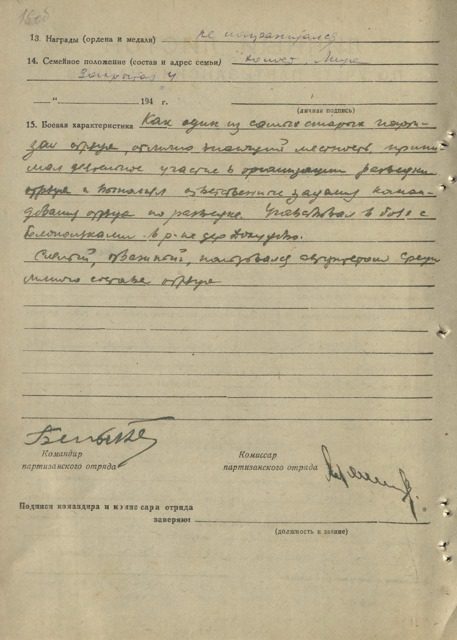 13. Награды (ордена и медали) не награждался
14. Семейное положение (состав и адрес семьи) холост,
„ “ 194 г.
(личная подпись)
15. Боевая характеристика Как один из самых старых парти-
зан отряда отлично знающий местность прини-
мал деятельное участие в организации разведки
отряда и выполнял ответственные задания коман-
дования отряда по разведке. Участвовал в бою с
белополяками в р-не дер.
Смелый, отважный, пользовался авторитетом среди
личного состава отряда
Командир
партизанского отряда
Комиссар
партизанского отряда
Подписи командира и комиссара отряда
заверяют
(должность и звание)